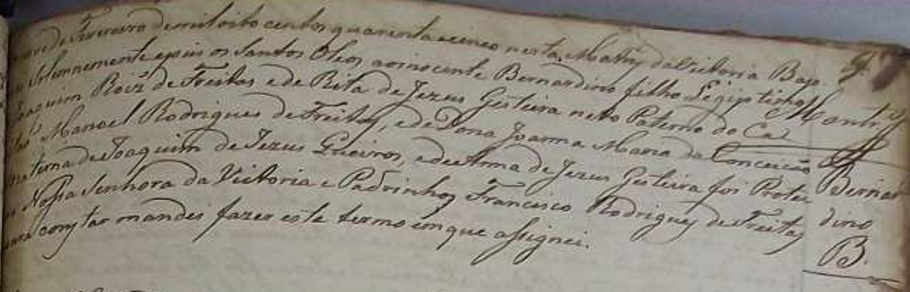 de Fevereiro de mil oito centos quarenta e cinco nesta Matriz da Victoria Bap
Solemnemente e puz os Santos Oleos ao innocente Bernardino filho Legiptimo
Joaquim Roiz de Freitas e de Rita de Jezus Gesteira neto Paterno do Ca
Manoel Rodrigues de Freitas, e de Dona Joanna Maria da Conceicão
materna de Joaquim de Jezus Queiros, e de Anna de Jezus Gesteira foi Prote
Nossa Senhora da Victoria e Padrinhos Francisco Rodrigues de Freitas
para constar mandei fazer este termo em que assignei.
Bernar
dino
B.